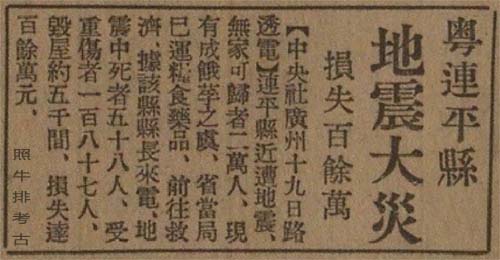 粵連平縣
地震大災
損失百餘萬
【中央社廣州十九日路
透電】連平縣近遭地震、
無家可歸者二萬人、現
有成餓莩之虞、省當局
已運糧食藥品、前往救
濟、據該縣縣長來電、地
震中死者五十八人、受
重傷者一百八十七人、
毀屋約五千間、損失達
百餘萬元、
照牛排考古